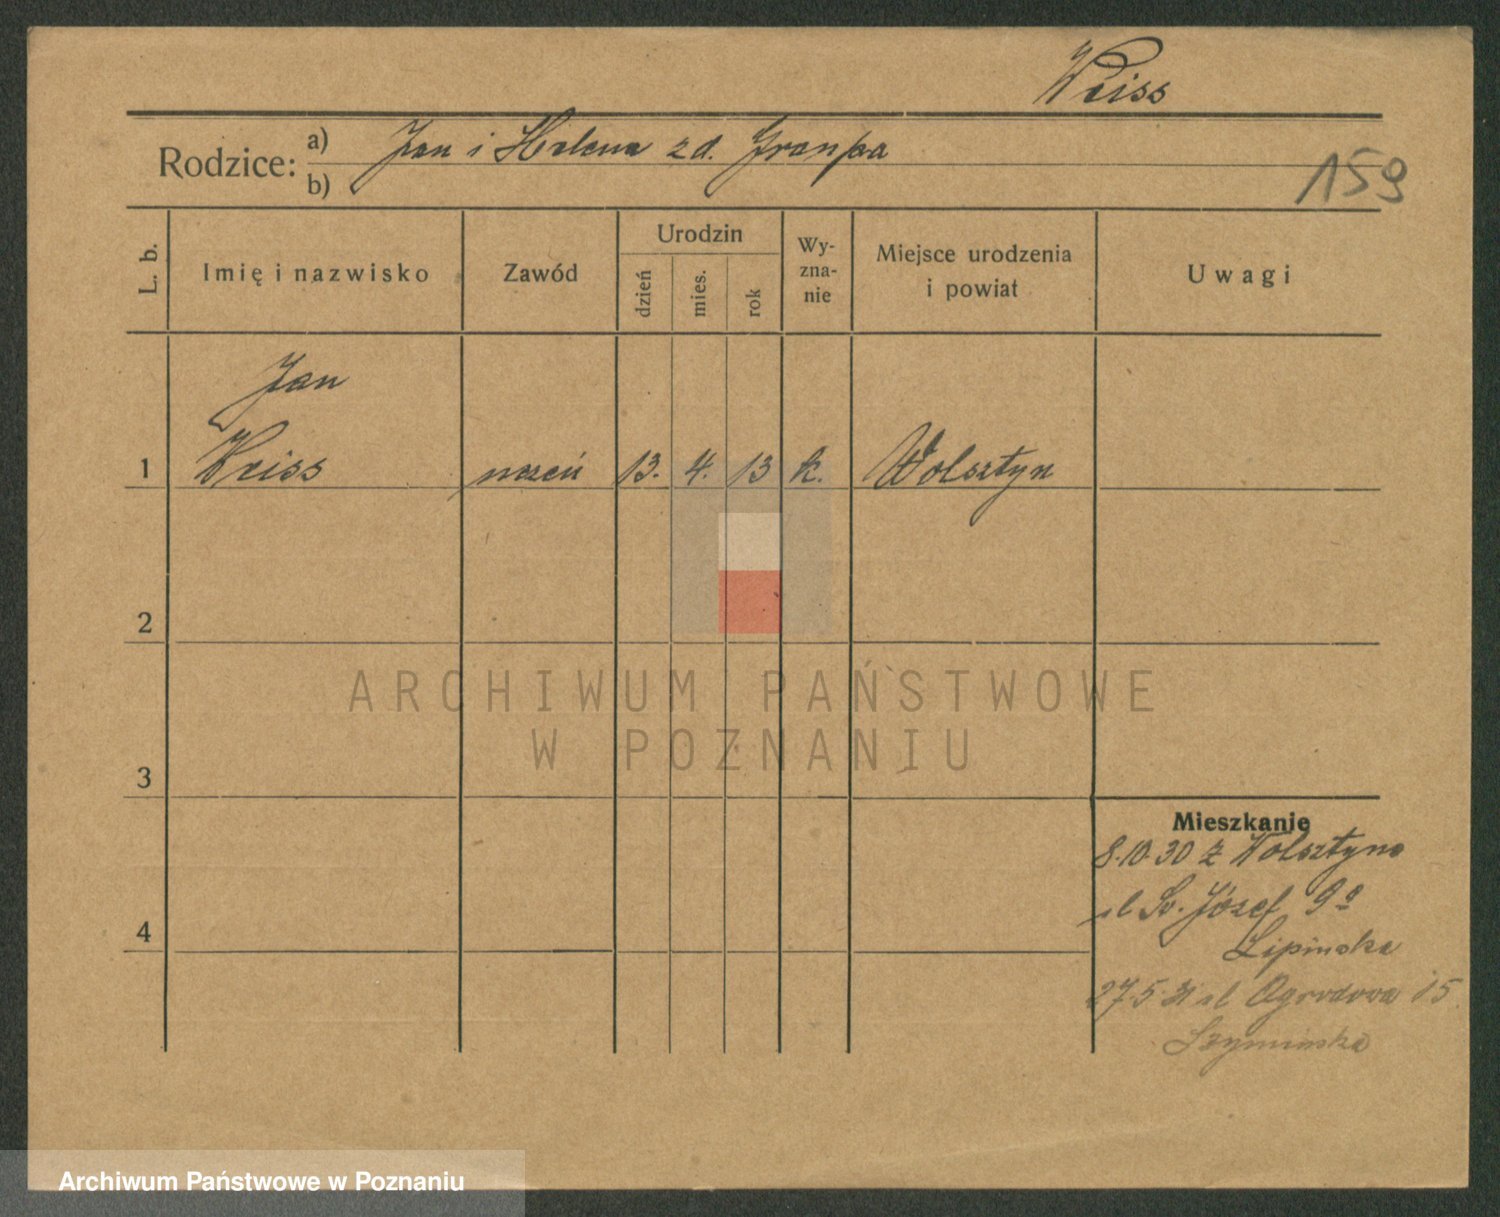 Weiss
Rodzice: a) Jan i Helena zd.
b)
159
L. b.
Imię i nazwisko
Zawód
Urodzin
dzień
mies.
rok
Wy-
zna-
nie
Miejsce urodzenia
i powiat
Uwagi
Jan
1 Weiss uczeń 13. 4. 13 k. Wolsztyn
2
3
4
Mieszkanie
8.10.30 z Wolsztyna
ul Św. Józef
Lipińska
27.5.31 ul Ogrodowa 15
Szymińska
ARCHIWUM PAŃSTWOWE
W POZNANIU
Archiwum Państwowe w Poznaniu